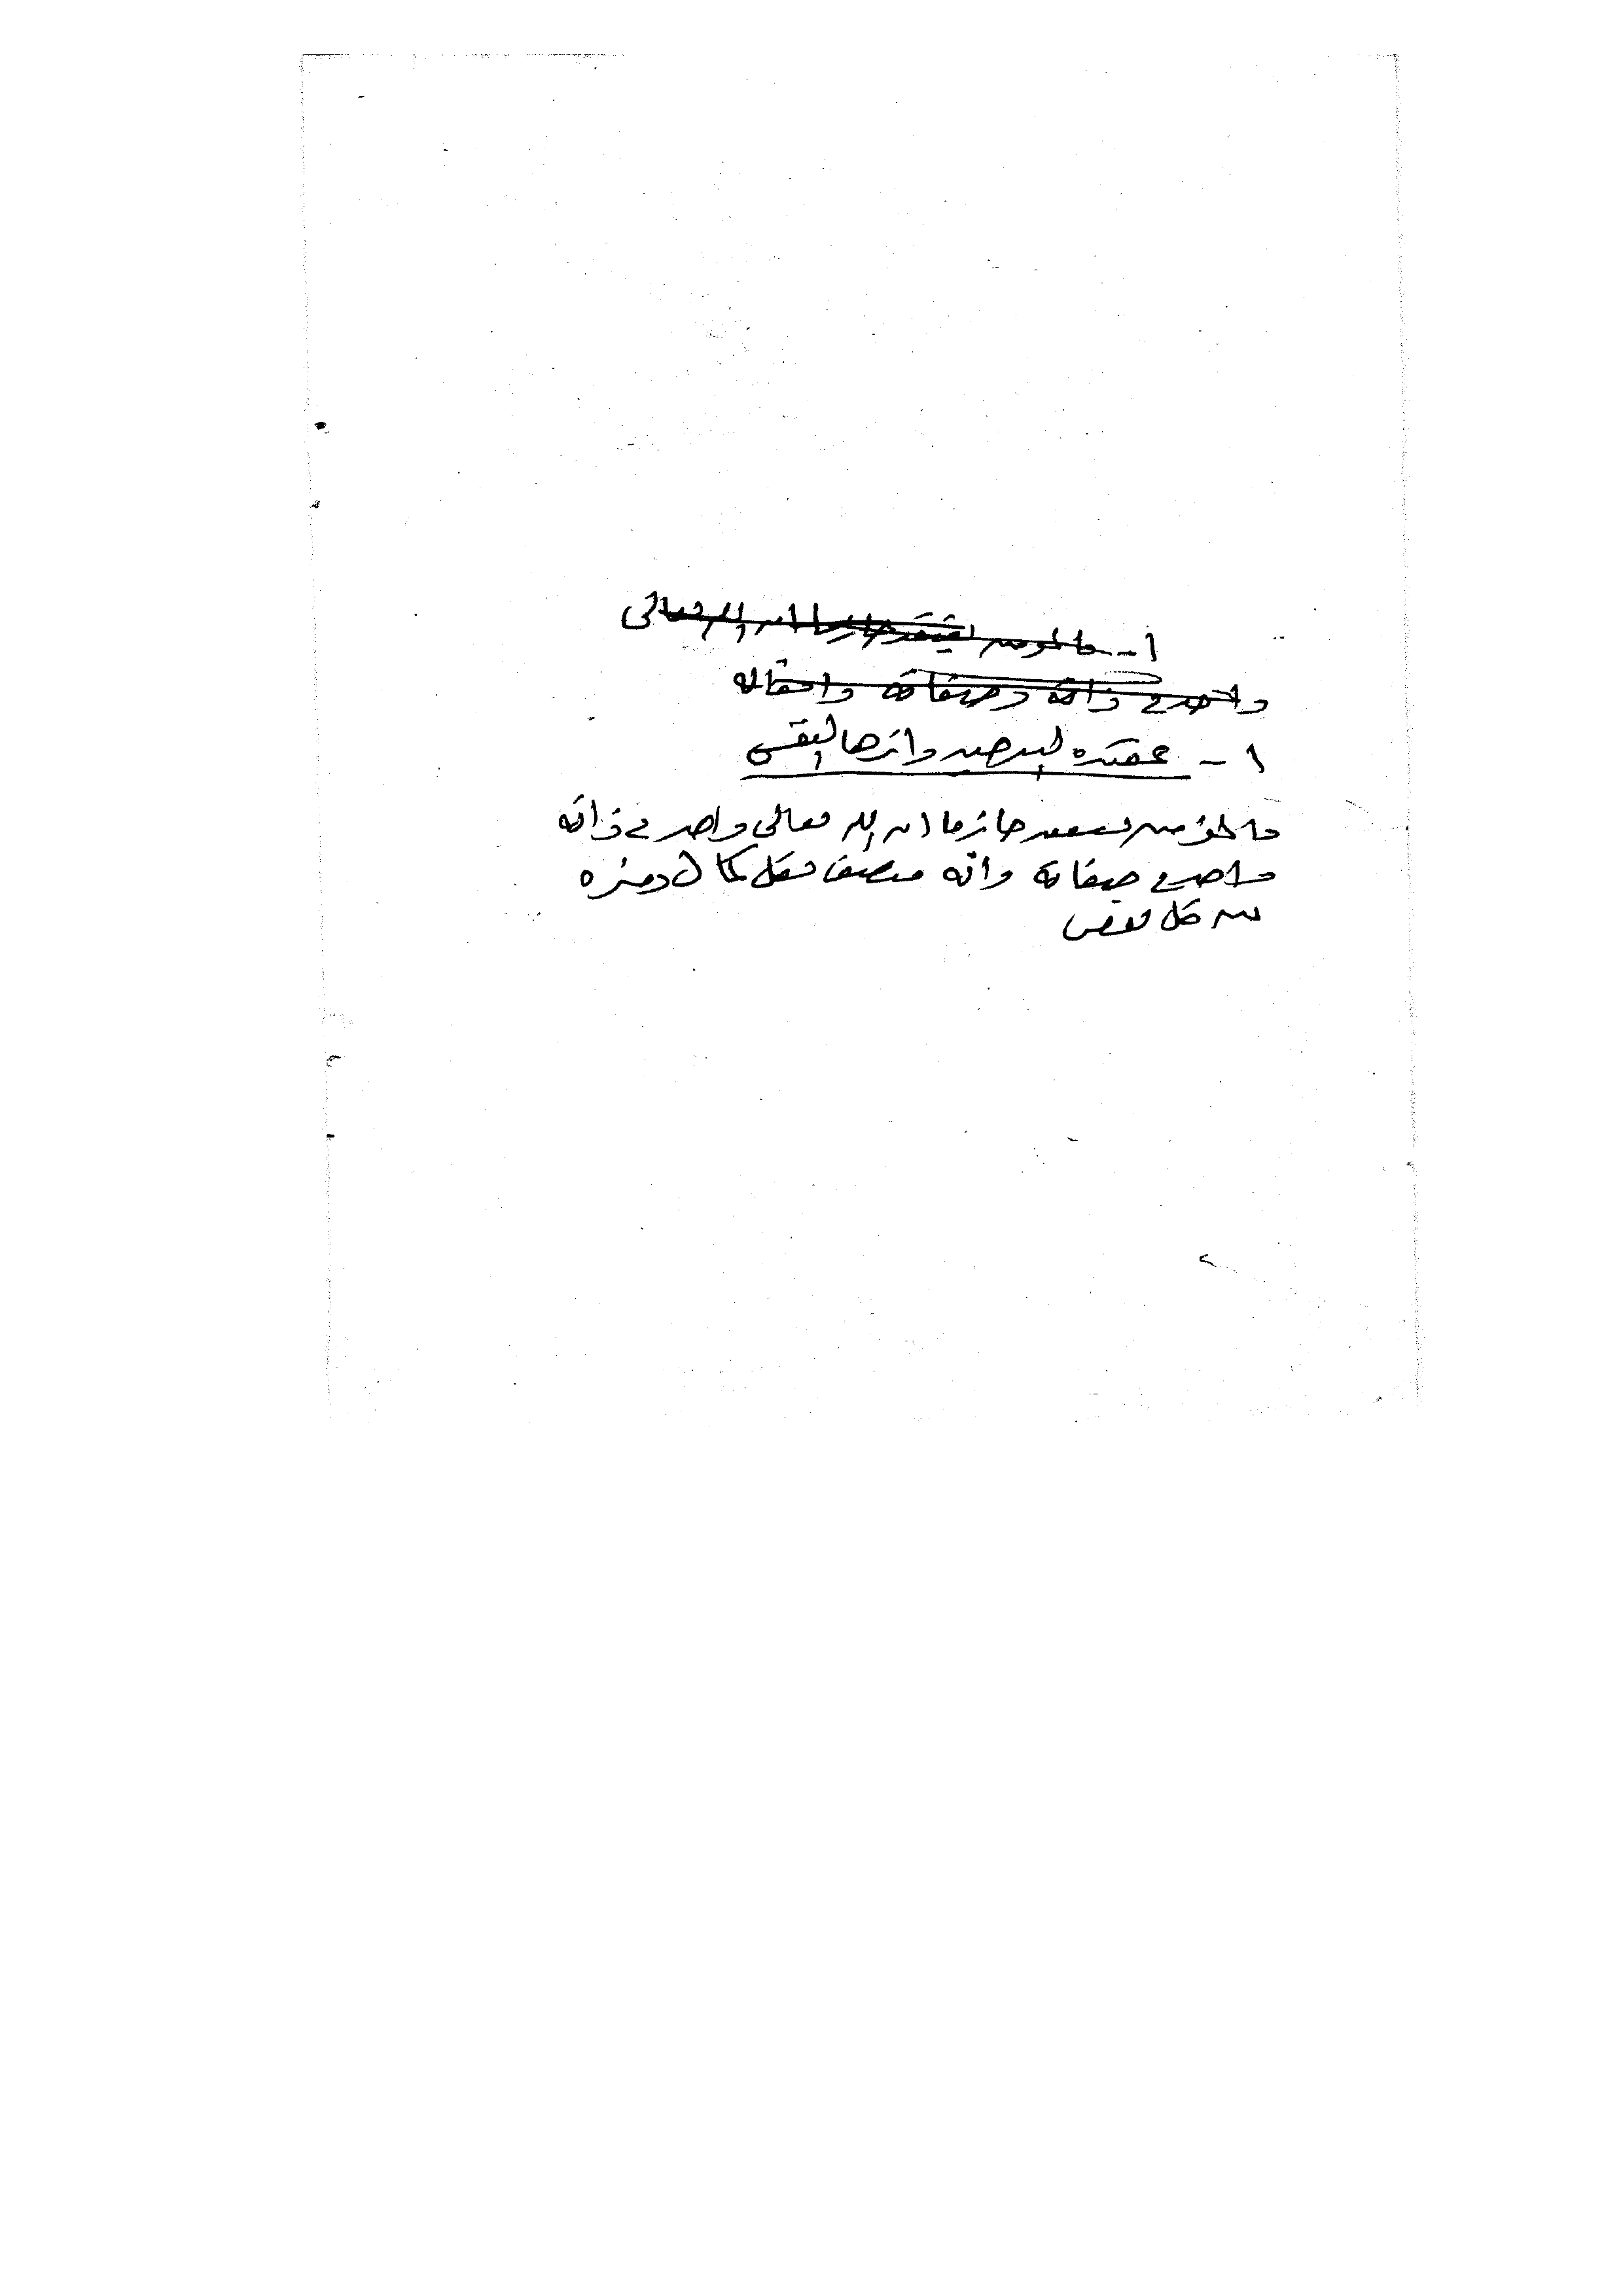 ١- فالمؤمن يعتقد جازما ان الله تعالى
واحد في ذاته وصفاته وافعاله
١- عقيده التوحيد واثرها النفسي
فالمؤمن يعتقد جازما ان الله تعالى واحد في ذاته
واحد في صفاته وانه متصف بكل كمال ومنزه
عن كل نقص